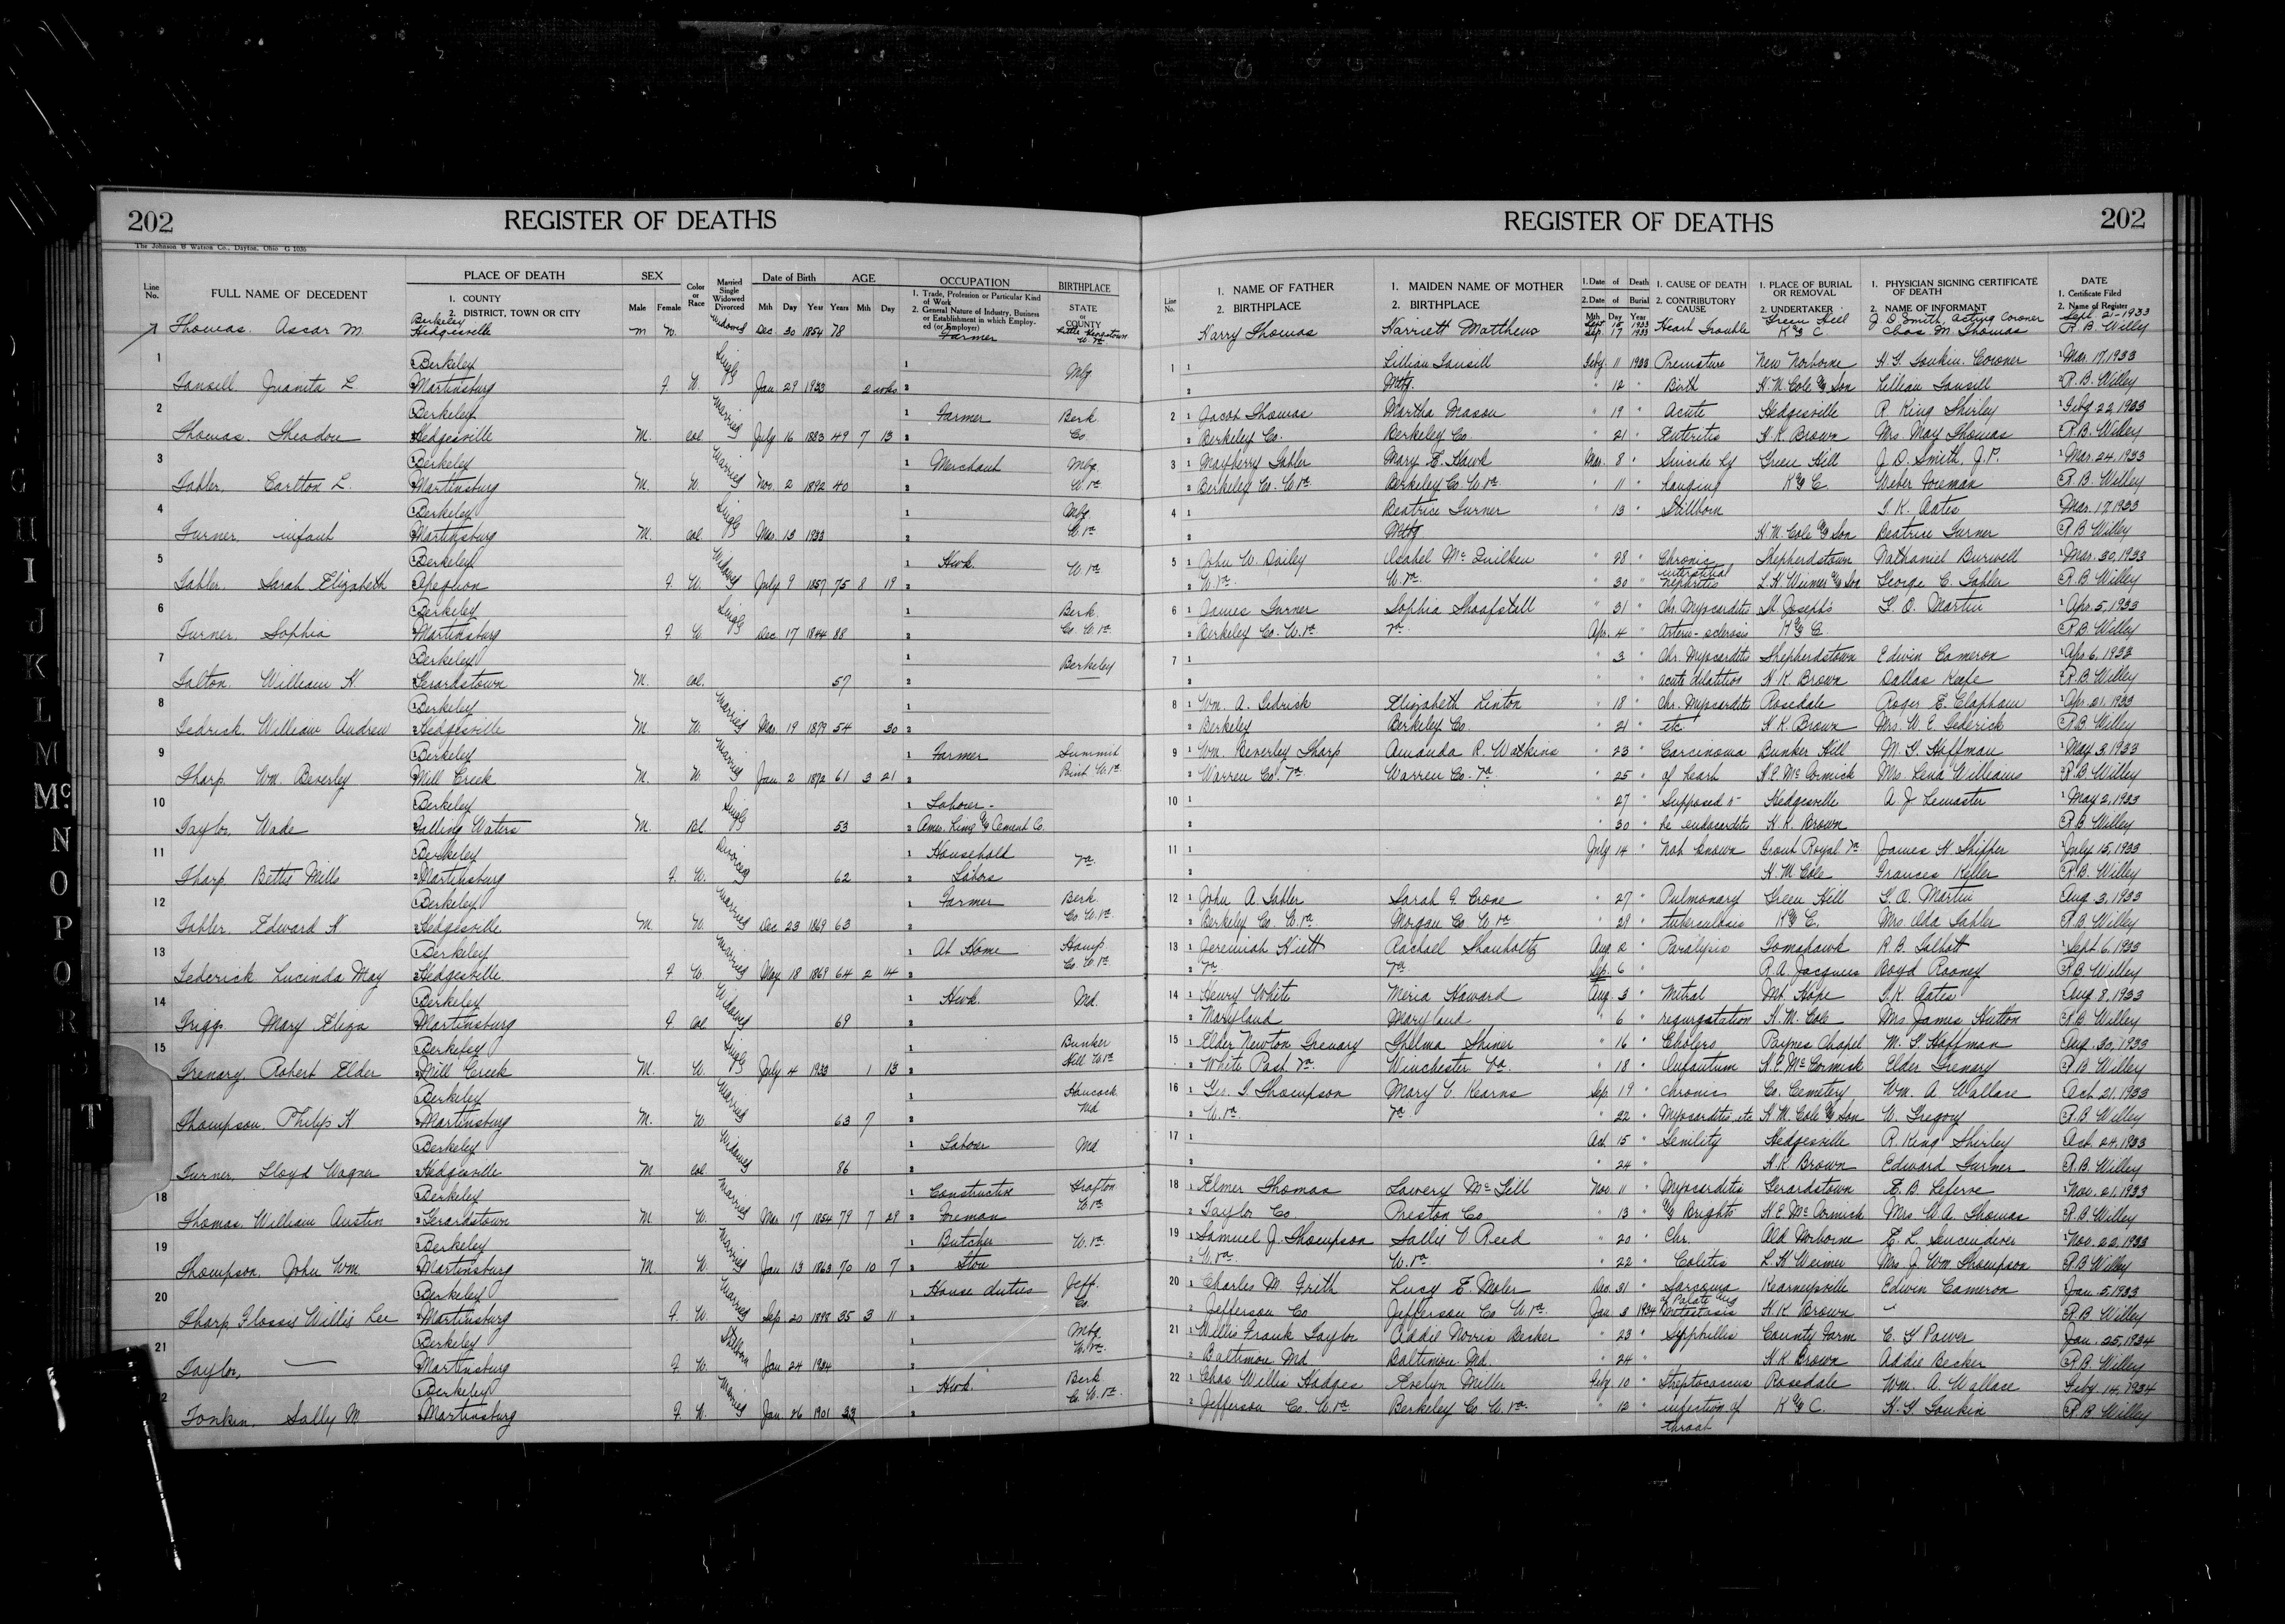 202
REGISTER OF DEATHS
The Johnson & Watson Co., Dayton, Ohio G 1036
Line No.
FULL NAME OF DECEDENT
PLACE OF DEATH
1. COUNTY
2. DISTRICT, TOWN OR CITY
SEX
Male Female
Color or Race
Married Single Widowed Divorced
Date of Birth
Mth Day Year
AGE
Years Mth Day
OCCUPATION
1. Trade, Profession or Particular Kind of Work
2. General Nature of Industry, Business or Establishment in which Employed (or Employer)
BIRTHPLACE
STATE or COUNTY
Thomas. Oscar M. Berkeley Hedgesville M W. Widowed Dec. 20 1854 78 Farmer
1 Berkeley Single 1 Mbg
Tansill Juanita L 2 Martinsburg F W. Jan 29 1933 2 wks 2
2 Berkeley Married 1 Farmer Berk
Thomas. Theodore 2 Hedgesville M. Col July 16 1883 49 7 13 2 Co
3 Berkeley Married 1 Merchant Mbg.
Tabler. Carlton L. 2 Martinsburg M. W. Nov. 2 1892 40 2 W. Va.
4 Berkeley Single 1 Mbg
Turner, infant 2 Martinsburg M. Col. Mar. 13 1933 2 W. Va
5 Berkeley Widowed 1 Hwk. W Va
Tabler. Sarah Elizabeth 2 Opequon F W. July 9 1857 75 8 19 2
6 Berkeley Single 1 Berk.
Turner. Sophia 2 Martinsburg F W. Dec 17 1844 88 2 Co. W. Va.
7 Berkeley 1 Berkeley
Talton. William H. 2 Gerardstown M. Col. 57 2
8 Berkeley Married 1
Tedrick. William Andrew 2 Hedgesville M W. Mar. 19 1879 54 30 2
9 Berkeley Married 1 Farmer Summit
Tharp. Wm. Beverley 2 Mill Creek M. W. Jan 2 1872 61 3 21 2 Point W. Va.
10 Berkeley Single 1 Laborer -
Taylor, Wade 2 Falling Waters M. Bl 53 2 Amer. Lime & Cement Co.
11 Berkeley Divorced 1 Household Va.
Tharp. Betty Mills 2 Martinsburg F. W. 62 2 Labors
12 Berkeley Married 1 Farmer Berk.
Tabler. Edward N 2 Hedgesville M. W. Dec 23 1869 63 2 Co W. Va.
13 Berkeley Married 1 At Home Hamp.
Tederick Lucinda May 2 Hedgesville F W. May 18 1869 64 2 14 2 Co W. Va.
14 Berkeley Widowed 1 Hwk. Md.
Triggs Mary Eliza 2 Martinsburg F Col 69 2
15 Berkeley Single 1 Bunker
Trenary. Robert Elder 2 Mill Creek M. W. July 4 1933 1 13 2 Hill W. Va
Berkeley Married 1 Hancock
Thompson. Philip H 2 Martinsburg M. W. 63 7 2 Md
Berkeley Widowed 1 Laborer Md
Turner, Lloyd Wagner 2 Hedgesville M Col 86 2
18 Berkeley Married 1 Construction Grafton
Thomas. William Austin 2 Gerardstown M W. Mar. 17 1854 79 7 29 2 Foreman W. Va
19 Berkeley Married 1 Butcher W. Va.
Thompson. John Wm. 2 Martinsburg M. W. Jan 13 1863 70 10 7 2 Store
20 Berkeley Married 1 House duties Jeff.
Tharp, Willis Lee 2 Martinsburg F. W. Sep 20 1898 35 3 11 2 Co.
21 Berkeley Stillborn 1 Mbg. W. Va.
Taylor, 2 Martinsburg F W. Jan 24 1934 2
2 Berkeley Married 1 Hwk. Berk
Tonkin, Sally M. 2 Martinsburg F. W. Jan. 26 1901 33 2 Co. W. Va.
REGISTER OF DEATHS
202
Line No.
1. NAME OF FATHER
2. BIRTHPLACE
1. MAIDEN NAME OF MOTHER
2. BIRTHPLACE
1. Date of Death
2. Date of Burial
Mth Day Year
1. CAUSE OF DEATH
2. CONTRIBUTORY CAUSE
1. PLACE OF BURIAL OR REMOVAL
2. UNDERTAKER
1. PHYSICIAN SIGNING CERTIFICATE OF DEATH
2. NAME OF INFORMANT
DATE
1. Certificate Filed
2. Name of Register
Sept 15 1933 Green Hill J D Smith, Acting Coroner Sept. 21-1933
Harry Thomas Harriett Matthews Sep. 17 1933 Heart Trouble K & C Chas M. Thomas R. B. Willey
1 1 Lillian Tansill Feby. 11 1933 Premature New Norborne H. G. Tonkin. Coroner 1 Mar. 17, 1933
2 Mbg. " 12 " Birth H. M. Cole & Son Lillian Tansill 2 R. B. Willey
2 1 Jacob Thomas Martha Mason " 19 " Acute Hedgesville R King Shirley 1 Feby 22 1933
2 Berkeley Co. Berkeley Co. " 21 " Enteritis H. K. Brown Mrs. May Thomas 2 R. B. Willey
3 1 Mayberry Tabler Mary E. Hawk Mar. 8 " Suicide by Green Hill J. D. Smith, J. P. 1 Mar. 24, 1933
2 Berkeley Co. W. Va. Berkeley Co. W. Va. " 11 " hanging K & C Weber Foreman 2 R. B. Willey
4 1 Beatrice Turner " 13 " Stillborn T. K. Oates 1 Mar. 17, 1933
2 Mbg H. M. Cole & Son Beatrice Turner 2 R B Willey
5 1 John W. Dailey Isabel McQuilken " 28 " Chronic interstitial Shepherdstown Nathaniel Burwell 1 Mar. 30, 1933
2 W. Va. W. Va. " 30 " nephritis George C. Tabler 2 R. B. Willey
6 1 James Turner Sophia " 31 " Chr. Myocarditis St Joseph's G. O. Martin 1 Apr. 5, 1933
2 Berkeley Co. W. Va. Va. Apr. 4 " Arterio-sclerosis K & C R. B. Willey
7 1 " 3 " Chr. Myocarditis Shepherdstown Edwin Cameron 1 Apr 6, 1933
2 " " acute dilatation H. K. Brown Dallas Keefe 2 R. B. Willey
8 1 Wm. A. Tedrick Elizabeth Linton " 18 " Chr. Myocarditis Rosedale Roger E. Clapham 1 Apr. 21, 1933
2 Berkeley Berkeley Co " 21 " etc H. K. Brown Mrs. W. E. Tederick 2 R. B. Willey
9 1 Wm. Beverley Tharp Amanda R. Watkins " 23 " Carcinoma Bunker Hill M. H. Hoffman 1 May 3, 1933
2 Warren Co. Va. Warren Co. Va " 25 " H. E. McCormick Mrs. Lena Williams 2 R. B. Willey
10 1 " 27 " Supposed to Hedgesville A. J. Lemaster 1 May 2, 1933
2 " 30 " be endocarditis H. K. Brown R. B. Willey
11 1 July 14 " Not known Front Royal Va James H Shipper 1 July 15, 1933
2 H. M. Cole Frances Keller R. B. Willey
12 1 John A. Tabler Sarah F. Crone " 27 " Pulmonary Green Hill G. O. Martin Aug 3, 1933
2 Berkeley Co. W. Va. Morgan Co W. Va. " 29 " tuberculosis K & C. Mrs Oda Tabler R. B. Willey
13 1 Jeremiah Hiett Rachael Shanholtz Aug. 2 " Paralysis Tomahawk R. B. Talbott 1 Sept. 6, 1933
2 Va Va. Sep. 6 " R. A. Jacques Boyd Rooney 2 R. B. Willey
14 1 Henry White Meria Howard Aug. 3 " Mitral Mt. Hope T. K. Oates Aug 8, 1933
2 Maryland Maryland " 6 " regurgitation H. M. Cole Mrs James Hutton 2 R. B. Willey
15 1 Elder Newton Trenary Thelma Shiner " 16 " Cholera Paynes Chapel M. H. Hoffman Aug. 30, 1933
2 White Post Va. Winchester Va. " 18 " Infantum H. E. McCormick Elder Trenary 2 R. B. Willey
16 1 Geo. T. Thompson Mary C. Kearns Sep. 19 " Chronic Co. Cemetery Wm. A. Wallace Oct. 21, 1933
2 W. Va. Va " 22 " Myocarditis, etc H. M. Cole & Son V. Gregory R. B. Willey
17 1 Oct 15 " Senility Hedgesville R. King Shirley Oct. 24, 1933
2 " 24 " H. K. Brown Edward Turner R. B. Willey
18 1 Elmer Thomas Lowery McGill Nov. 11 " Myocarditis Gerardstown 1 Nov. 21, 1933
2 Taylor Co Preston Co " 13 " & Brights H. E. McCormick Mrs. W. A. Thomas 2 R. B. Willey
19 1 Samuel J. Thompson Sallie V Reed " 20 " Chr. Old Norborne 1 Nov. 22, 1933
2 W. Va. W. Va. " 22 " Colitis Mrs. J. Wm. Thompson 2 R B Willey
20 1 Charles M. Lucy E. Moler Dec. 31 " Sarcoma of Palate and Kearneysville Edwin Cameron Jan. 5, 1933
2 Jefferson Co Jefferson Co W. Va. Jan 3 1934 Metastasis H. K. Brown " 2 R. B. Willey
21 1 Willis Frank Taylor Addie Norris Becker " 23 " Syphillis County Farm C. G Power Jan. 25, 1934
2 Baltimore Md Baltimore Md. " 24 " H. K Brown Addie Becker 2 R. B. Willey
22 1 Chas. Willis Hodges Evelyn Miller Feby 10 " Streptococcus Rosedale Wm. A. Wallace Feby. 14, 1934
2 Jefferson Co. W. Va. Berkeley Co W. Va. " 12 " infection of throat K & C. H. G Tonkin 2 R B Willey
G
H
I
J
K
L
M
Mc
N
O
P
Q
R
S
T